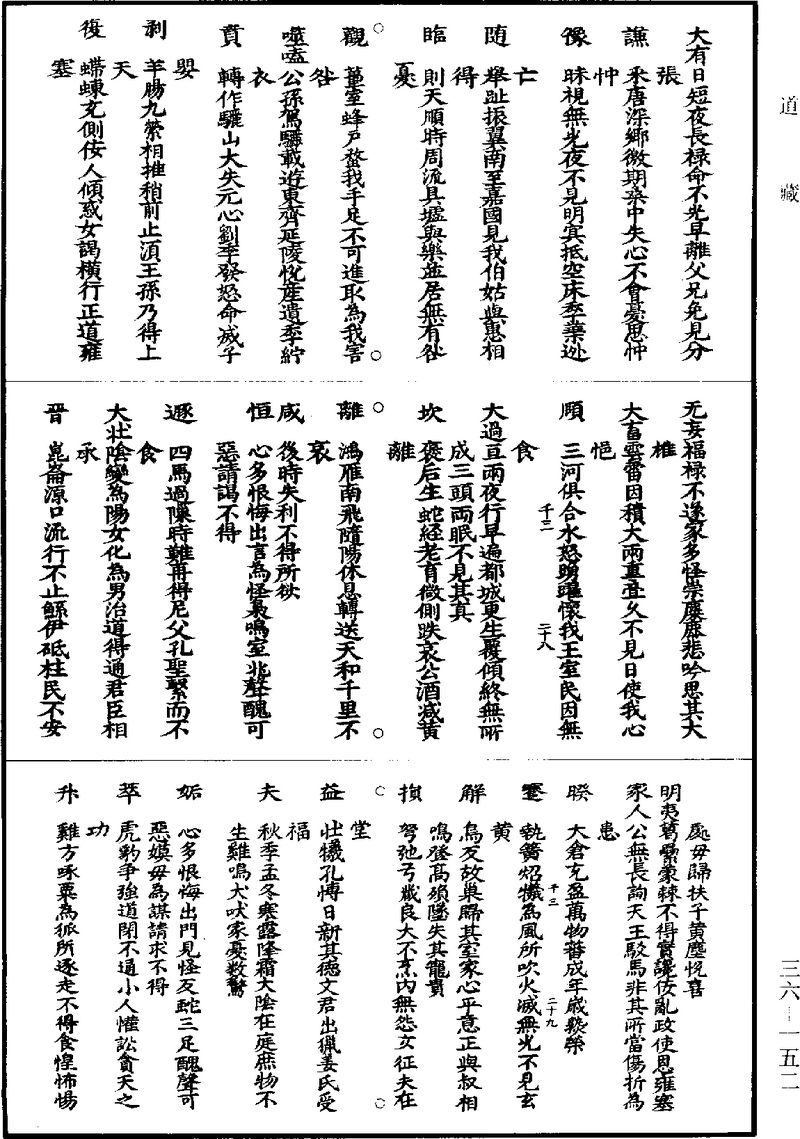 道藏
大有日短夜長禄命不光早離父兄免見分
張
謙　釆唐深鄉徼期桑中失心不會憂思忡
忡
豫　眛視無光夜不見明冥抵空床季葉逃
亡
随　舉趾振翼南至嘉國見我伯姑與惠相
得
臨　則天順時周流其墟與樂並居無有咎
憂
觀　蓳室蜂户螫我手足不可進取為我害
咎
噬嗑公孫駕驪載遊東齊延陵恱産遺季紵
衣
賁　轉作驪山大失元心劉季發怒命滅子
嬰
剥　羊腸九縈相推稍前止湏王孫乃得上
天
復　蝃蝀充側佞人傾惑女謁横行正道雍
塞
无妄福禄不遂家多怪祟麋鹿悲吟思其大
椎
大畜雲雷因積大雨重疊久不見日使我心
悒
頥　三河俱合水怒踴躍懷我王室民因無
食
千三
二十八
大過亘雨夜行早遍都城更生覆傾終無所
成三頭兩眠不見其真
坎　褒后生蛇経老育微側跌哀公酒滅黄
離
離　鴻雁南飛隨陽休息轉送天和千里不
哀
咸　後時失利不得所欲
恒　心多恨悔出言為怪梟鳴室北聲醜可
惡請謁不得
遯　四馬過隙時難再得尼父孔聖繫而不
食
大壮陰變為陽女化為男治道得通君臣相
承
晋　崑崙源口流行不止鯀伊砥柱民不安
處母歸扶子黄麈恱喜
明夷葛虆蒙棘不得實讒佞亂政使恩雍塞
家人公無長詢天王駮馬非其所當傷折為
患
暌　大倉充盈萬物蕃成年歲發榮
蹇　執簧炤犧為風所吹火滅無光不見玄
黄
千三
二十九
解　烏反故巢歸其室家心平意正與叔相
鳴登髙殞墜失其寵貴
損　弩弛弓藏良犬不烹内無怨女征夫在
堂
益　壮犧孔愽日新其徳文君出獵姜氏受
福
夬　秋季孟冬寒露隆霜大陰在庭庶物不
生雞鳴犬吠家憂數驚
姤　心多恨悔出門見怪反蛇三足醜聲可
惡嫫母為謀請求不得
萃　虎豹争強道閉不通小人懽訟貪天之
功
升　雞方啄粟為狐所逐走不得食惶怖惕
三六—一五二